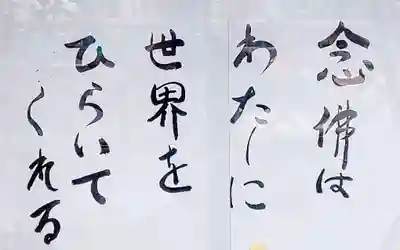 念佛は
わたしに
世界を
ひらいて
くれる